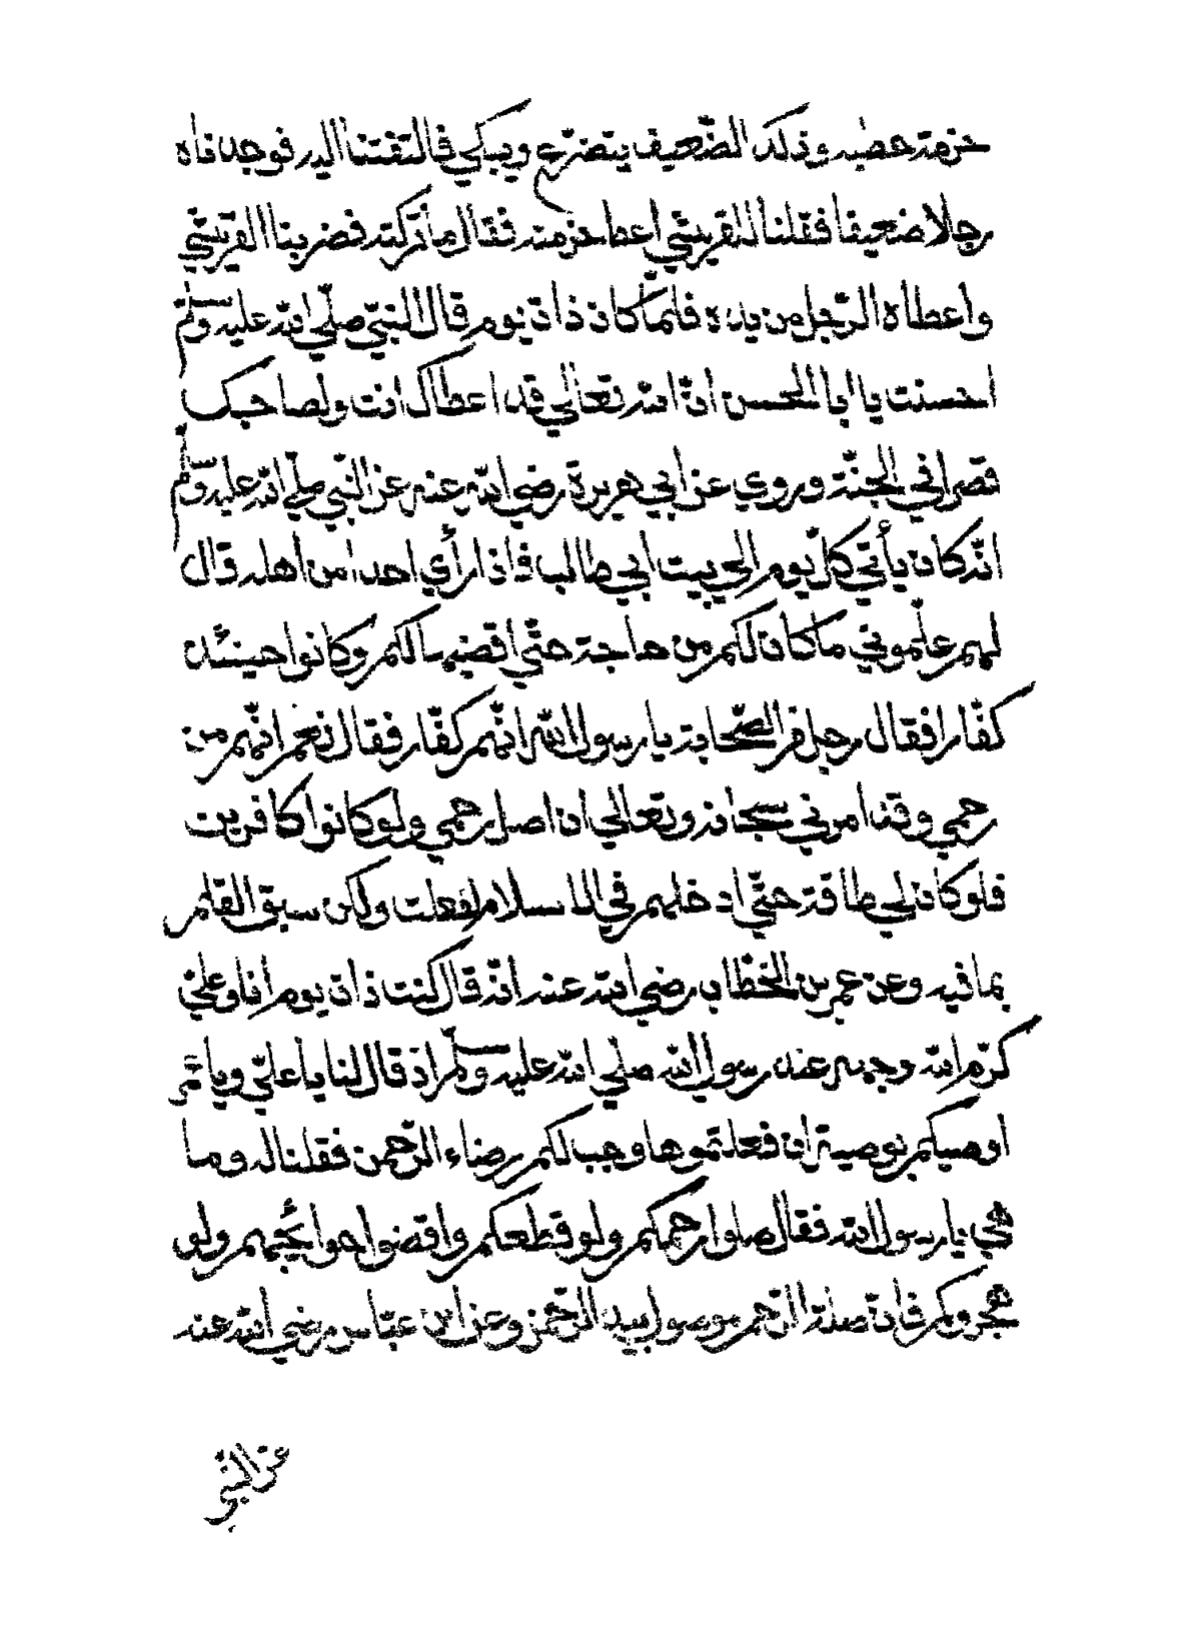 حزمة حطبه وذلك الضّعيف يتضرّع ويبكي فالتفتنا اليه فوجدناه
رجلا ضعيفا فقلنا للقريشي اعطه حزمته فقال ما نركته فضربنا القريشي
واعطاه الرّجل من يده فلمّا كان ذات يوم قال النبيّ صلّي الله عليه وسلّم
احسنت يا ابا الحسن انّ الله تعالي قد اعطاك انت ولصاحبك
قصرا في الجنّة وروي عن ابي هريرة رضي الله عنه عن النّبي صلّي الله عليه وسلّم
انّه كان يأتي كلّ يوم الي بيت ابي طالب فاذا رأي احدا من اهله قال
لهم علّموني ما كان لكم من حاجة حتّي اقضيها لكم وكانوا حينئد
كفّارا فقال رجل من الصّحابة يا رسول الله انّهم كفّار فقال نعم انّهم من
رحمي وقد امرني سبحانه وتعالي ان اصل رحمي ولو كانوا كافرين
فلو كان لي طاقة حتّي ادخلهم في الاسلام لفعلت ولكن سبق القلم
بما فيه وعن عمر بن الخطّاب رضي الله عنه انّه قال كنت ذات يوم انا وعليّ
كرّم الله وجهه عند رسول الله صلي الله عليه وسلّم اذ قال لنا يا عليّ ويا عمر
اوصيكم بوصية ان فعلتموها وجب لكم رضاء الرّحمن فقلنا له وما
هي يا رسول الله فقال صلوا رحمكم ولو قطعكم واقضوا حوائجهم ولو
هجروكم فانّ صلة الرّحم موصول بيد الرّحمن وعن ابن عبّاس رضي الله عنه
عن النّبي